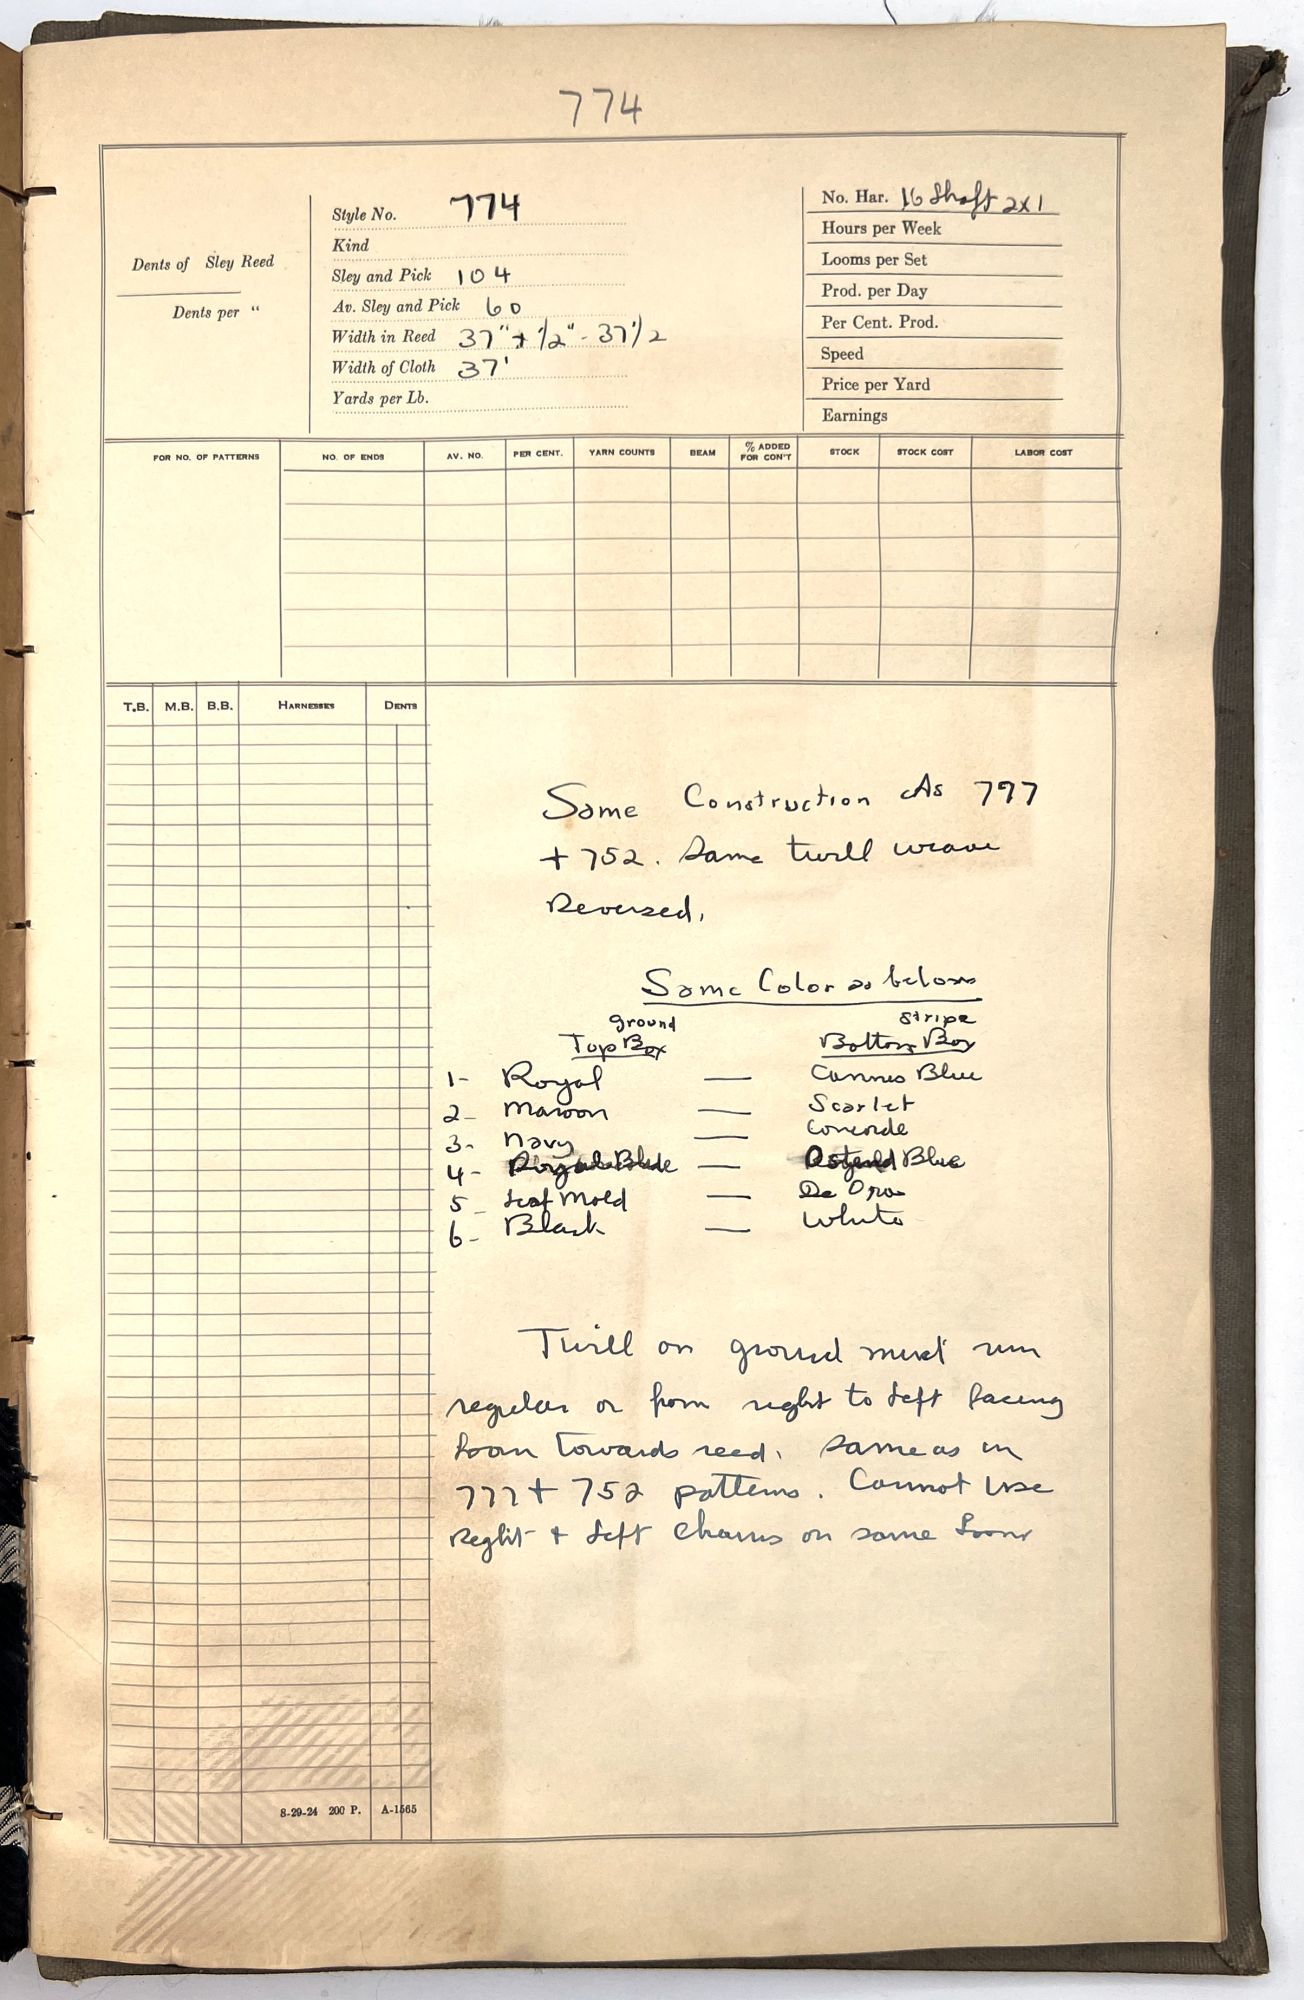 774
Dents of Sley Reed
Dents per "
Style No. 774
Kind
Sley and Pick 104
Av. Sley and Pick 60
Width in Reed 37" + 1/2" - 37 1/2
Width of Cloth 37'
Yards per Lb.
No. Har. 16 Shaft 2x1
Hours per Week
Looms per Set
Prod. per Day
Per Cent. Prod.
Speed
Price per Yard
Earnings
FOR NO. OF PATTERNS NO. OF ENDS AV. NO. PER CENT. YARN COUNTS BEAM % ADDED FOR CON'T STOCK STOCK COST LABOR COST
T.B. M.B. B.B. HARNESSES DENTS
Same Construction As 777
+ 752. Same twill weave
Reversed.
Same Color as below
ground stripe
Top Box Bottom Box
1- Royal — Cannes Blue
2- Maroon — Scarlet
3- Navy — Concorde
4- Royal Blue — Ostend Blue
5- Leaf Mold — De Oro
6- Black — White
Twill on ground must run
regular or from right to left facing
loom towards reed. Same as in
777 + 752 patterns. Cannot use
Right + Left Chains on same Loom
8-29-24 200 P. A-1565